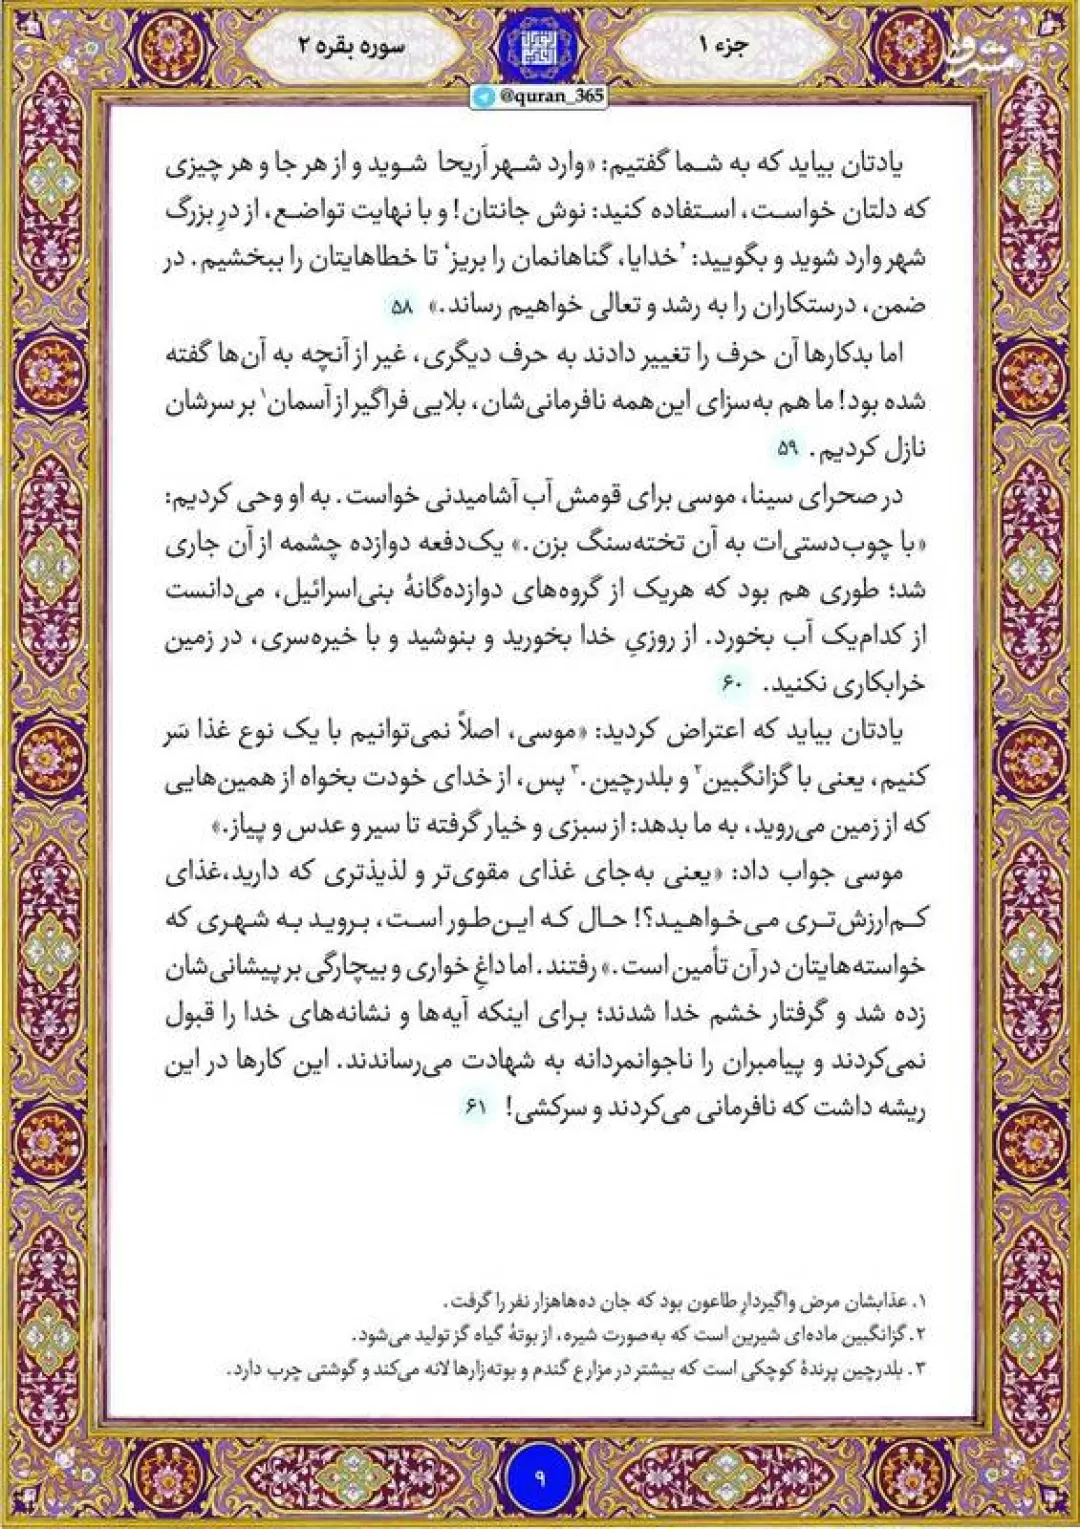 جزء ۱
سوره بقره ۲
@quran_365
یادتان بیاید که به شما گفتیم: «وارد شهر اَریحا شوید و از هر جا و هر چیزی
که دلتان خواست، استفاده کنید: نوش جانتان! و با نهایت تواضع، از درِ بزرگ
شهر وارد شوید و بگویید: ’خدایا، گناهانمان را بریز‘ تا خطاهایتان را ببخشیم. در
ضمن، درستکاران را به رشد و تعالی خواهیم رساند.» ۵۸
اما بدکارها آن حرف را تغییر دادند به حرف دیگری، غیر از آنچه به آن‌ها گفته
شده بود! ما هم به‌سزای این‌همه نافرمانی‌شان، بلایی فراگیر از آسمان۱ بر سرشان
نازل کردیم. ۵۹
در صحرای سینا، موسی برای قومش آب آشامیدنی خواست. به او وحی کردیم:
«با چوب‌دستی‌ات به آن تخته‌سنگ بزن.» یک‌دفعه دوازده چشمه از آن جاری
شد؛ طوری هم بود که هریک از گروه‌های دوازده‌گانهٔ بنی‌اسرائیل، می‌دانست
از کدام‌یک آب بخورد. از روزیِ خدا بخورید و بنوشید و با خیره‌سری، در زمین
خرابکاری نکنید. ۶۰
یادتان بیاید که اعتراض کردید: «موسی، اصلاً نمی‌توانیم با یک نوع غذا سَر
کنیم، یعنی با گزانگبین۲ و بلدرچین.۳ پس، از خدای خودت بخواه از همین‌هایی
که از زمین می‌روید، به ما بدهد: از سبزی و خیار گرفته تا سیر و عدس و پیاز.»
موسی جواب داد: «یعنی به‌جای غذای مقوی‌تر و لذیذتری که دارید،غذای
کم‌ارزش‌تری می‌خواهید؟! حال که این‌طور است، بروید به شهری که
خواسته‌هایتان در آن تأمین است.» رفتند. اما داغِ خواری و بیچارگی بر پیشانی‌شان
زده شد و گرفتار خشم خدا شدند؛ برای اینکه آیه‌ها و نشانه‌های خدا را قبول
نمی‌کردند و پیامبران را ناجوانمردانه به شهادت می‌رساندند. این کارها در این
ریشه داشت که نافرمانی می‌کردند و سرکشی! ۶۱
۱. عذابشان مرض واگیردارِ طاعون بود که جان ده‌هاهزار نفر را گرفت.
۲. گزانگبین ماده‌ای شیرین است که به‌صورت شیره، از بوتهٔ گیاه گز تولید می‌شود.
۳. بلدرچین پرندهٔ کوچکی است که بیشتر در مزارع گندم و بوته‌زارها لانه می‌کند و گوشتی چرب دارد.
۹